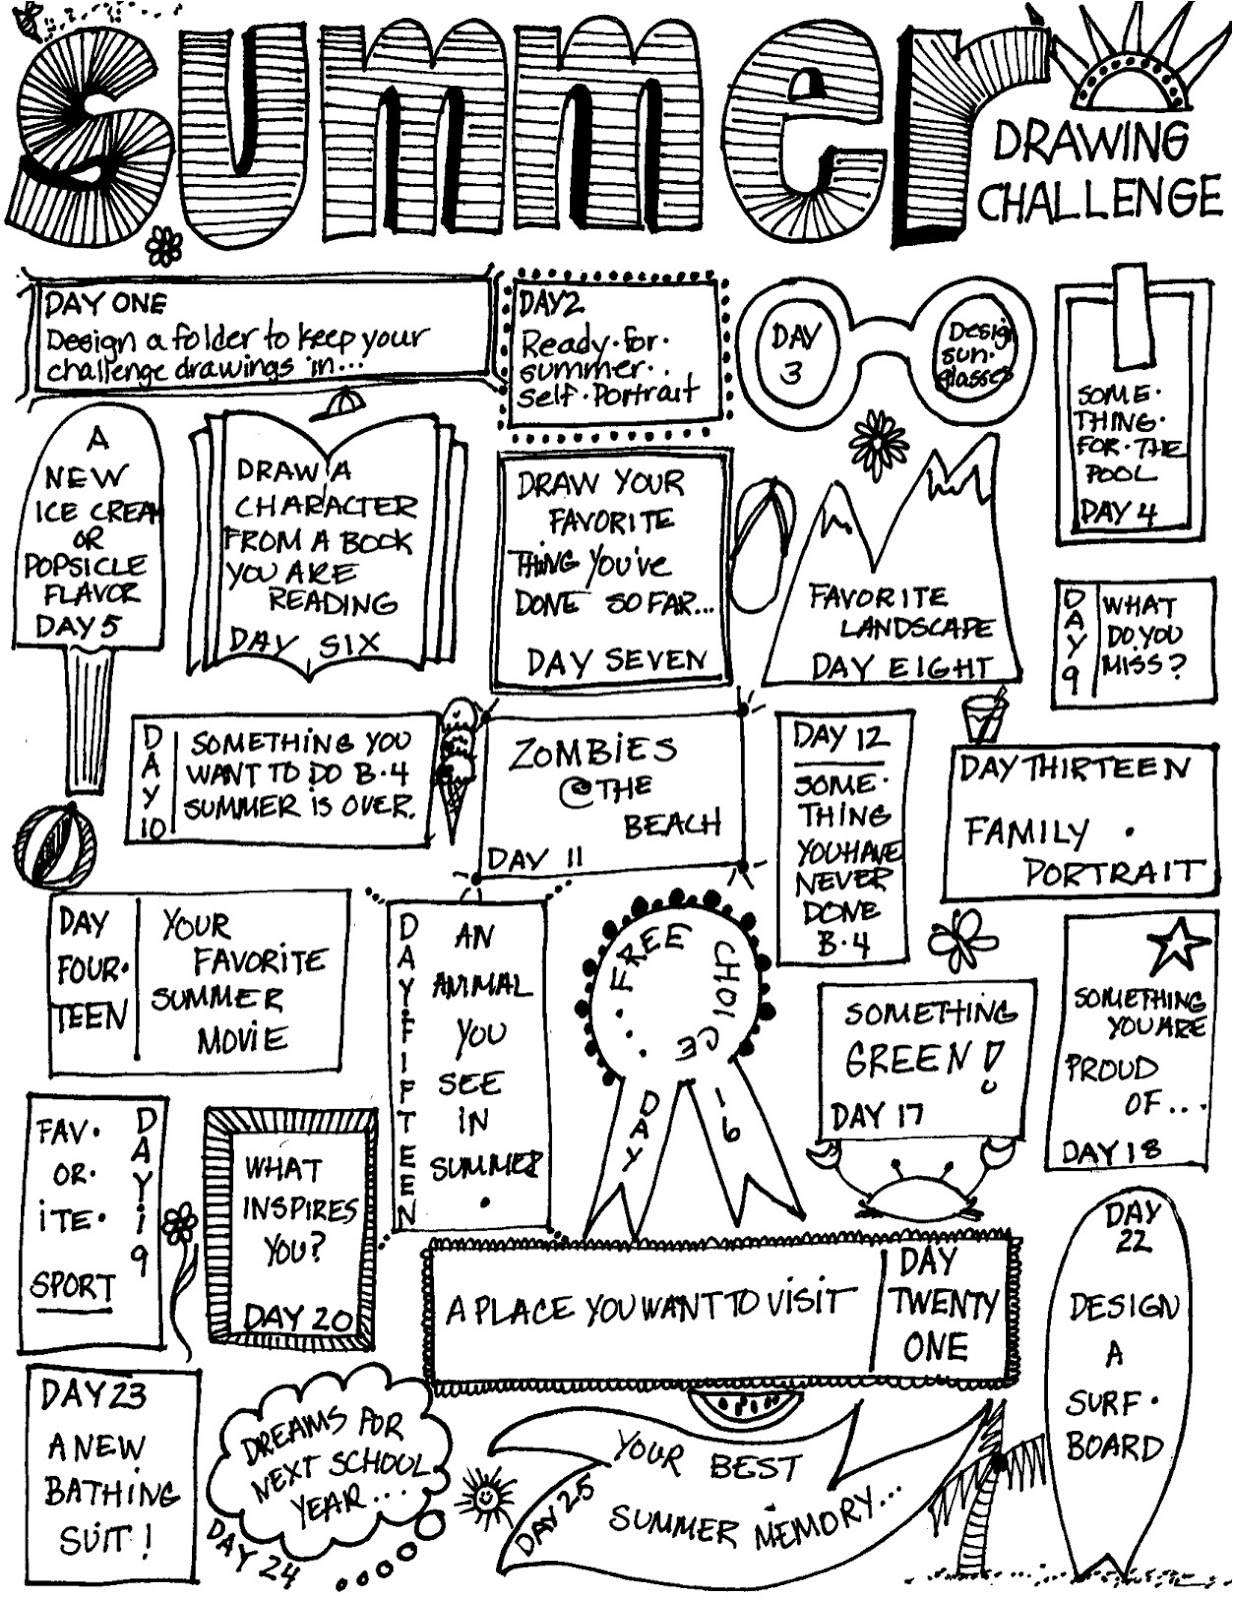 summer
DRAWING
CHALLENGE
DAY ONE
Design a folder to keep your
challenge drawings in...
DAY2
Ready·for·
summer..
self·Portrait
DAY
3
Design
sun·
glasses
SOME·
THING·
FOR·THE
POOL
DAY 4
A
NEW
ICE CREAM
OR
POPSICLE
FLAVOR
DAY 5
DRAW A
CHARACTER
FROM A BOOK
YOU ARE
READING
DAY SIX
DRAW YOUR
FAVORITE
THING YOU'VE
DONE SO FAR...
DAY SEVEN
FAVORITE
LANDSCAPE
DAY EIGHT
DAY 9
WHAT
DO YOU
MISS?
DAY 10
SOMETHING YOU
WANT TO DO B·4
SUMMER IS OVER.
ZOMBIES
@ THE
BEACH
DAY 11
DAY 12
SOME·
THING
YOU HAVE
NEVER
DONE
B·4
DAY THIRTEEN
FAMILY ·
PORTRAIT
DAY
FOUR·
TEEN
YOUR
FAVORITE
SUMMER
MOVIE
DAY FIFTEEN
AN
ANIMAL
YOU
SEE
IN
SUMMER
.
...FREE CHOICE
DAY 16
SOMETHING
GREEN!
DAY 17
SOMETHING
YOU ARE
PROUD
OF...
DAY 18
FAV·
OR·
ITE·
SPORT
DAY 19
WHAT
INSPIRES
YOU?
DAY 20
A PLACE YOU WANT TO VISIT
DAY
TWENTY
ONE
DAY
22
DESIGN
A
SURF·
BOARD
DAY 23
A NEW
BATHING
SUIT!
DREAMS FOR
NEXT SCHOOL
YEAR....
DAY 24
DAY 25
YOUR BEST
SUMMER MEMORY...